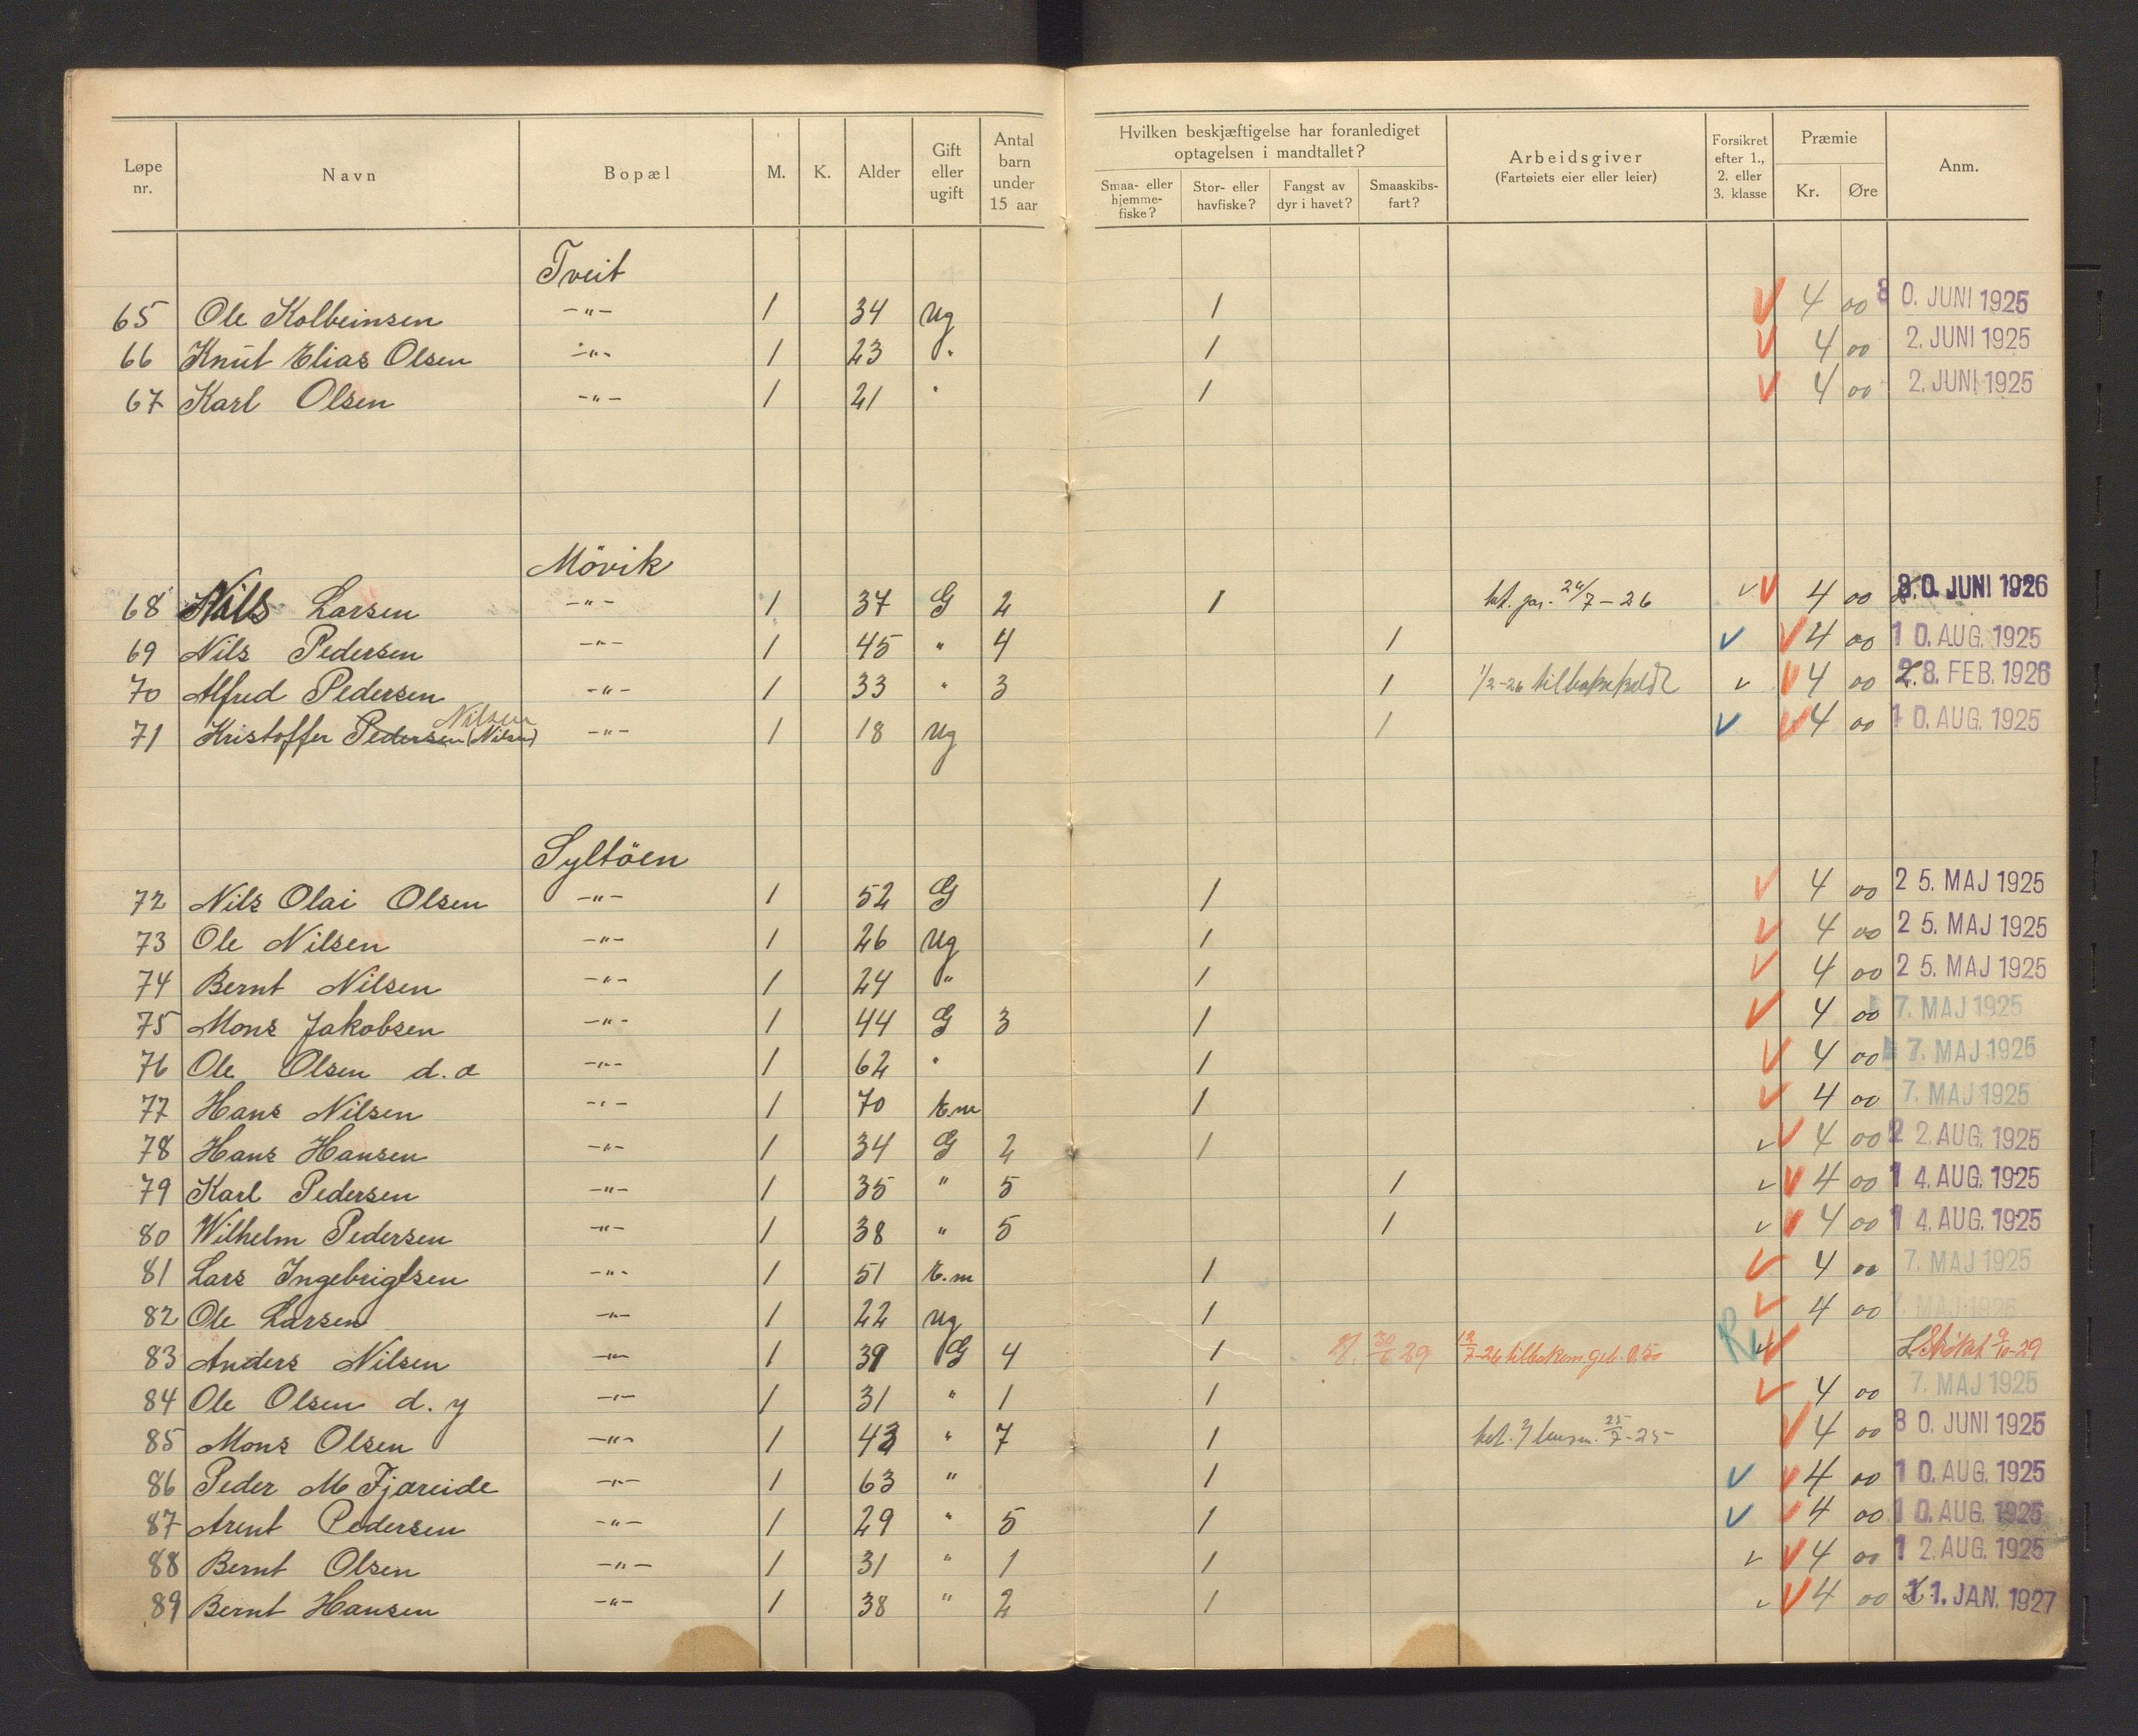 Løpe nr. Navn Bopæl M. K. Alder Gift eller ugift Antal barn under 15 aar Hvilken beskjæftigelse har foranlediget optagelsen i mandtallet? Smaa- eller hjemme-fiske? Stor- eller havfiske? Fangst av dyr i havet? Smaaskibs-fart? Arbeidsgiver (Fartøiets eier eller leier) Forsikret efter 1., 2. eller 3. klasse Præmie Kr. Øre Anm.
Tveit
65 Ole Kolbeinsen -"- 1 34 Ug 1 4 00 30. JUNI 1925
66 Knut Elias Olsen -"- 1 23 " 1 4 00 2. JUNI 1925
67 Karl Olsen -"- 1 21 " 1 4 00 2. JUNI 1925
Mövik
68 Nils Larsen -"- 1 37 G 2 1 7-26 4 00 30. JUNI 1926
69 Nils Pedersen -"- 1 45 " 4 1 4 00 10. AUG. 1925
70 Alfred Pedersen -"- 1 33 " 3 1 1/2-26 4 00 28. FEB. 1926
Nilsen
71 Kristoffer Pedersen (Nilsen) -"- 1 18 Ug 1 4 00 10. AUG. 1925
Syltöen
72 Nils Olai Olsen -"- 1 52 G 1 4 00 25. MAJ 1925
73 Ole Nilsen -"- 1 26 Ug 1 4 00 25. MAJ 1925
74 Bernt Nilsen -"- 1 24 " 1 4 00 25. MAJ 1925
75 Mons Jakobsen -"- 1 44 G 3 1 4 00 7. MAJ 1925
76 Ole Olsen d. e -"- 1 62 " 1 4 00 7. MAJ 1925
77 Hans Nilsen -"- 1 70 E.m 1 4 00 7. MAJ 1925
78 Hans Hansen -"- 1 34 G 2 1 4 00 22. AUG. 1925
79 Karl Pedersen -"- 1 35 " 5 1 4 00 14. AUG. 1925
80 Wilhelm Pedersen -"- 1 38 " 5 1 4 00 14. AUG. 1925
81 Lars Ingebrigtsen -"- 1 51 E.m 1 4 00 7. MAJ 1925
82 Ole Larsen -"- 1 22 Ug 1 4 00 7. MAJ 1925
83 Anders Nilsen -"- 1 39 G 4 1 30/6 29 12/7-26 R
84 Ole Olsen d. y -"- 1 31 " 1 1 4 00 7. MAJ 1925
85 Mons Olsen -"- 1 43 " 7 1 25/7-25 4 00 30. JUNI 1925
86 Peder M Fjæreide -"- 1 63 " 1 4 00 10. AUG. 1925
87 Arent Pedersen -"- 1 29 " 5 1 4 00 10. AUG. 1925
88 Bernt Olsen -"- 1 31 " 1 1 4 00 12. AUG. 1925
89 Bernt Hansen -"- 1 38 " 2 1 4 00 11. JAN. 1927